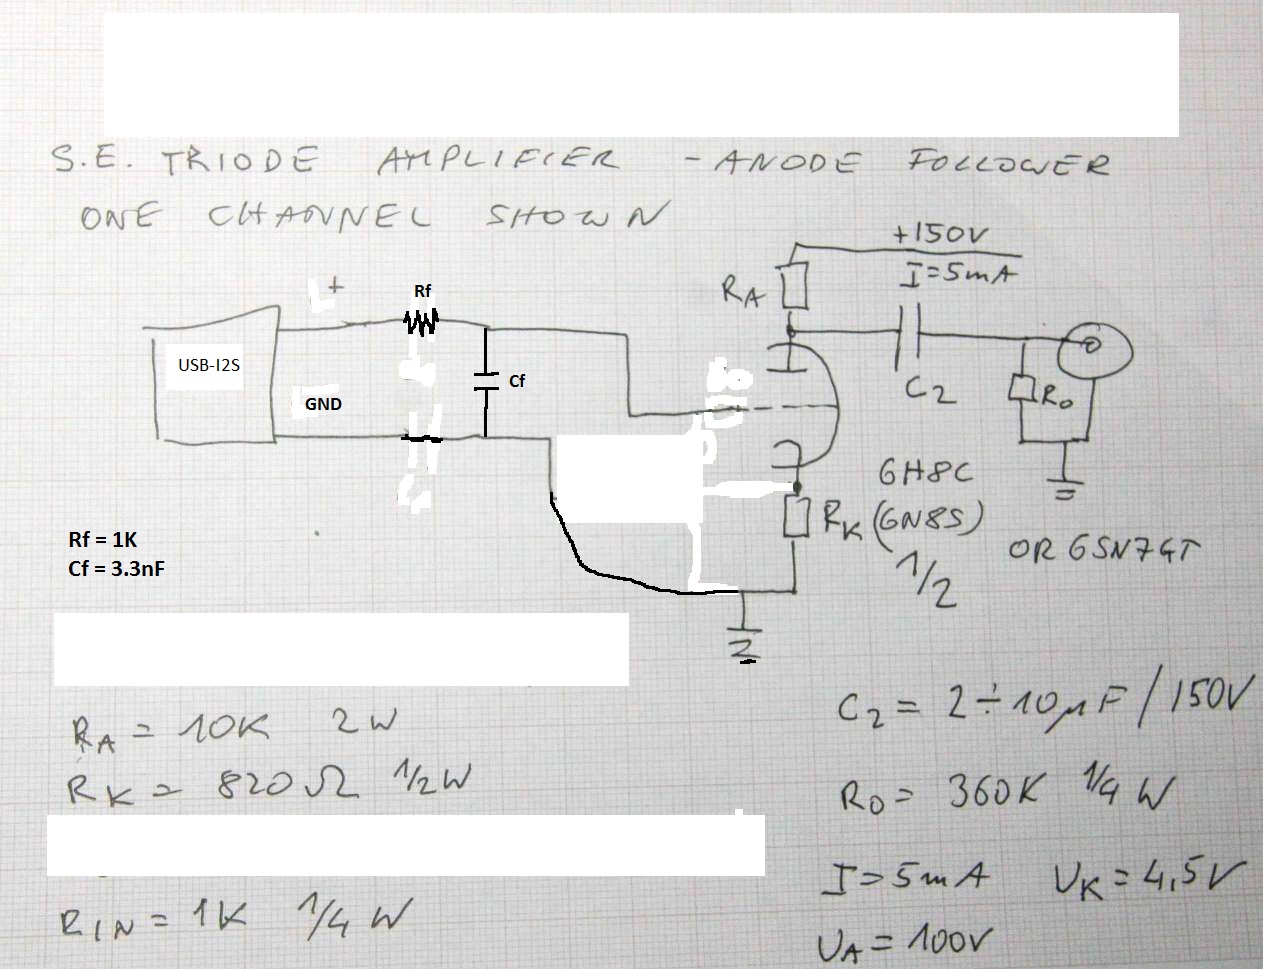 S.E. TRIODE AMPLIFIER - ANODE FOLLOWER
ONE CHANNEL SHOWN
+150V
I=5mA
RA
L+
Rf
USB-I2S
GND
Cf
C2
Ro
6H8C
RK (6N8S)
1/2
OR 6SN7GT
Rf = 1K
Cf = 3.3nF
RA = 10K 2W
RK = 820Ω 1/2W
RIN = 1K 1/4 W
C2 = 2÷10μF/150V
RO = 360K 1/4 W
I=5mA UK=4,5V
UA=100V